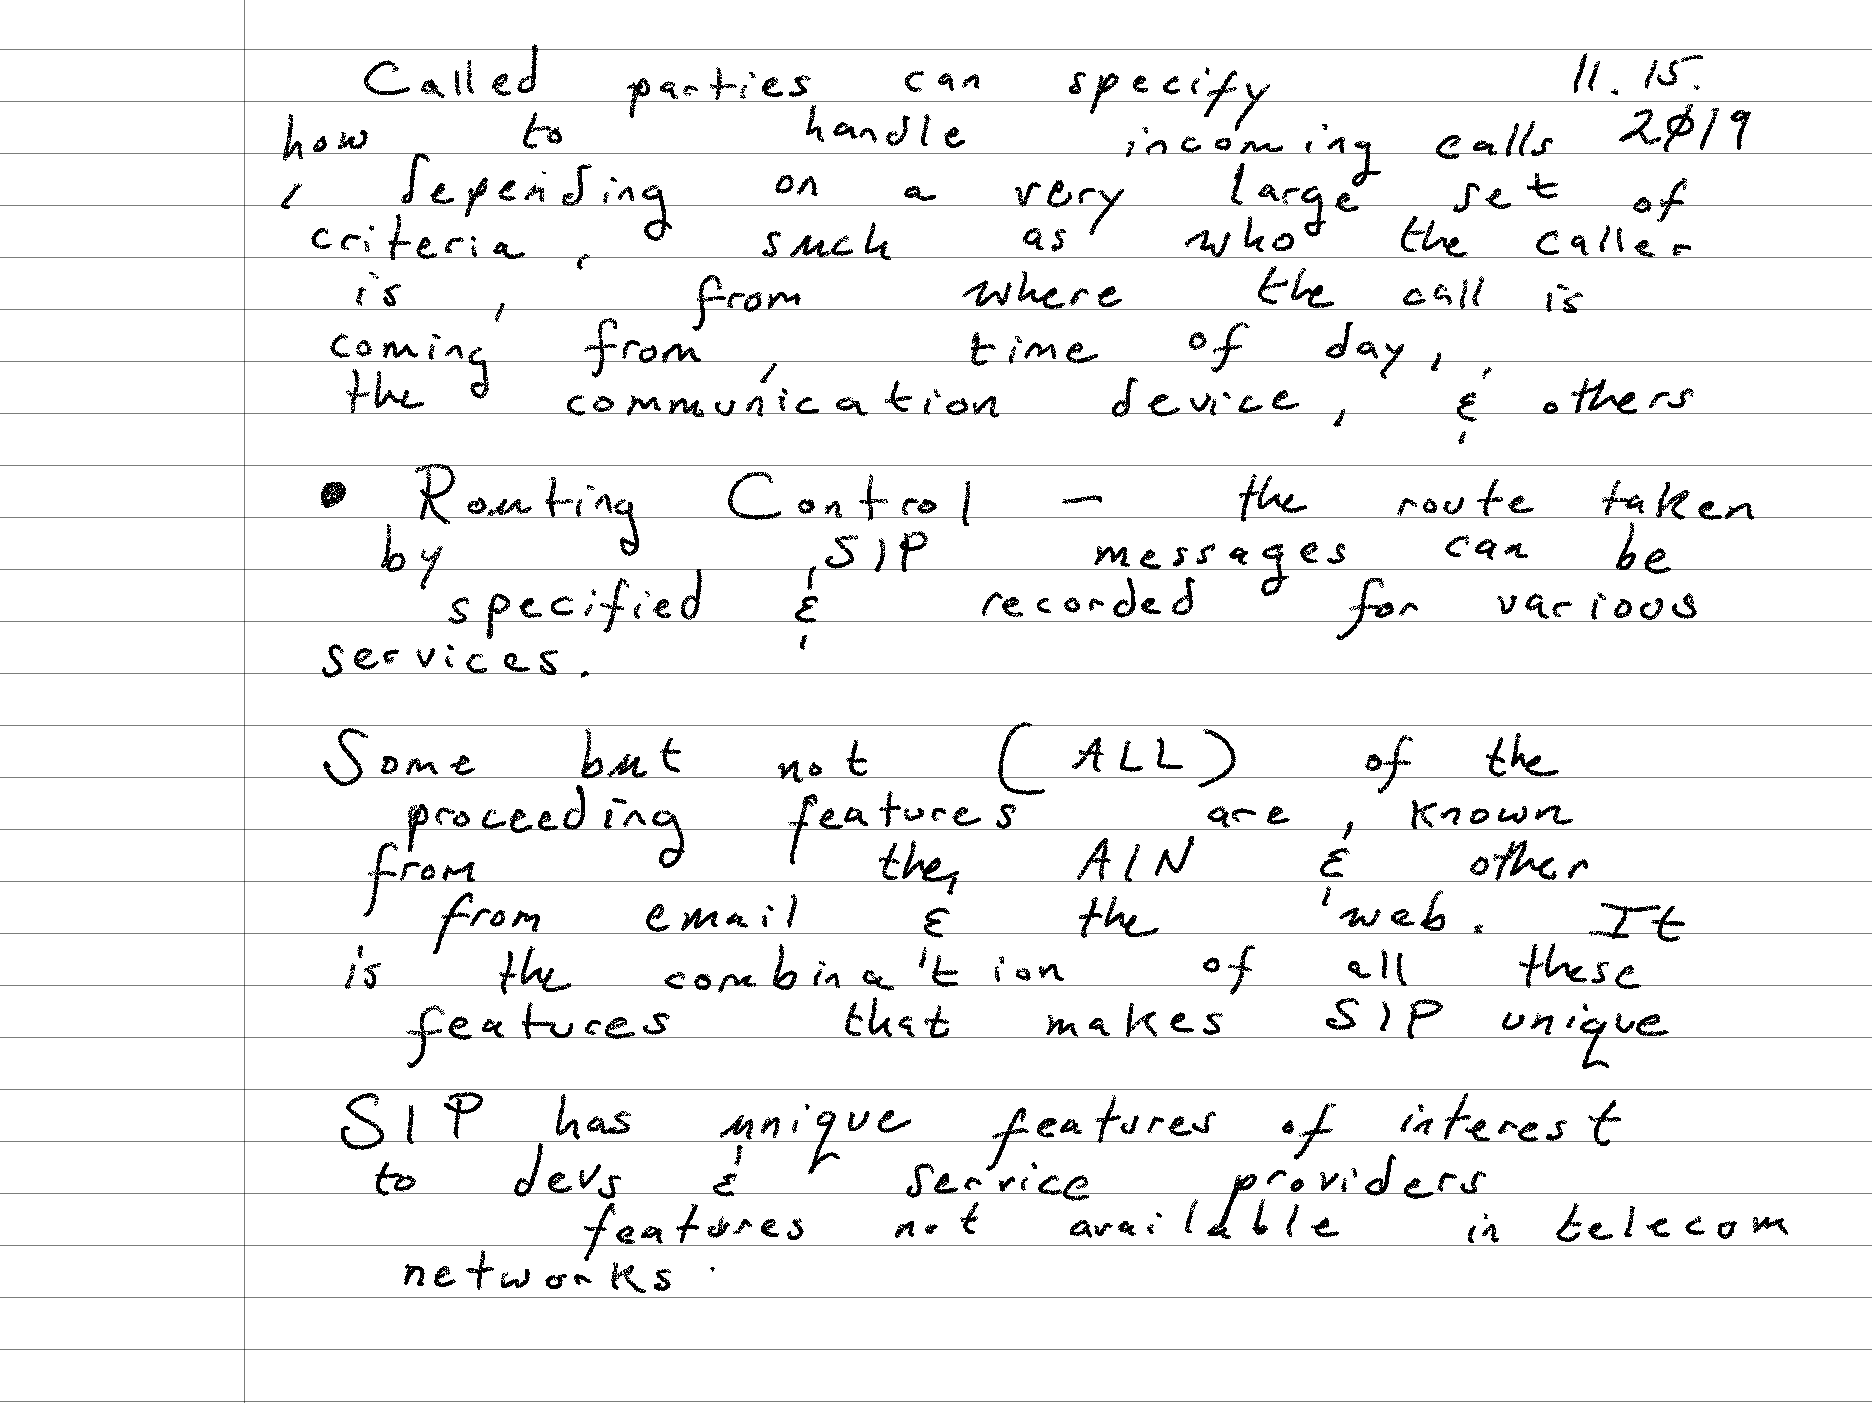 Called parties can specify 11.15.
how to handle incoming calls 2019
, depending on a very large set of
criteria, such as who the caller
is, from where the call is
coming from, time of day,
the communication device, & others
• Routing Control — the route taken
by SIP messages can be
specified & recorded for various
services.
Some but not (ALL) of the
proceeding features are known
from the AIN & other
from email & the web. It
is the combination of all these
features that makes SIP unique
SIP has unique features of interest
to devs & service providers
features not available in telecom
networks.